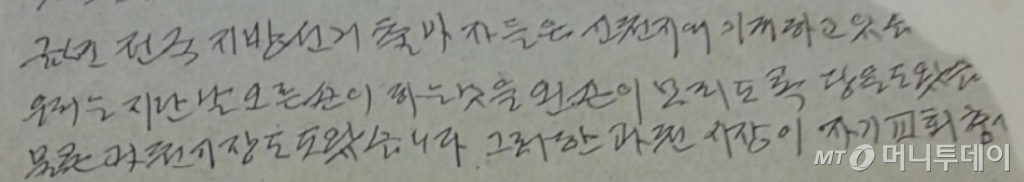 금번 전국 지방선거 출마 자들은 신천지에 기대하고 있는
우리는 지난날 오른손이 하는 것을 왼손이 모리도록 당을 도왔습
물론 과천시장도 도왔습니다 그러한 과천 시장이 자기 교회
MT 머니투데이